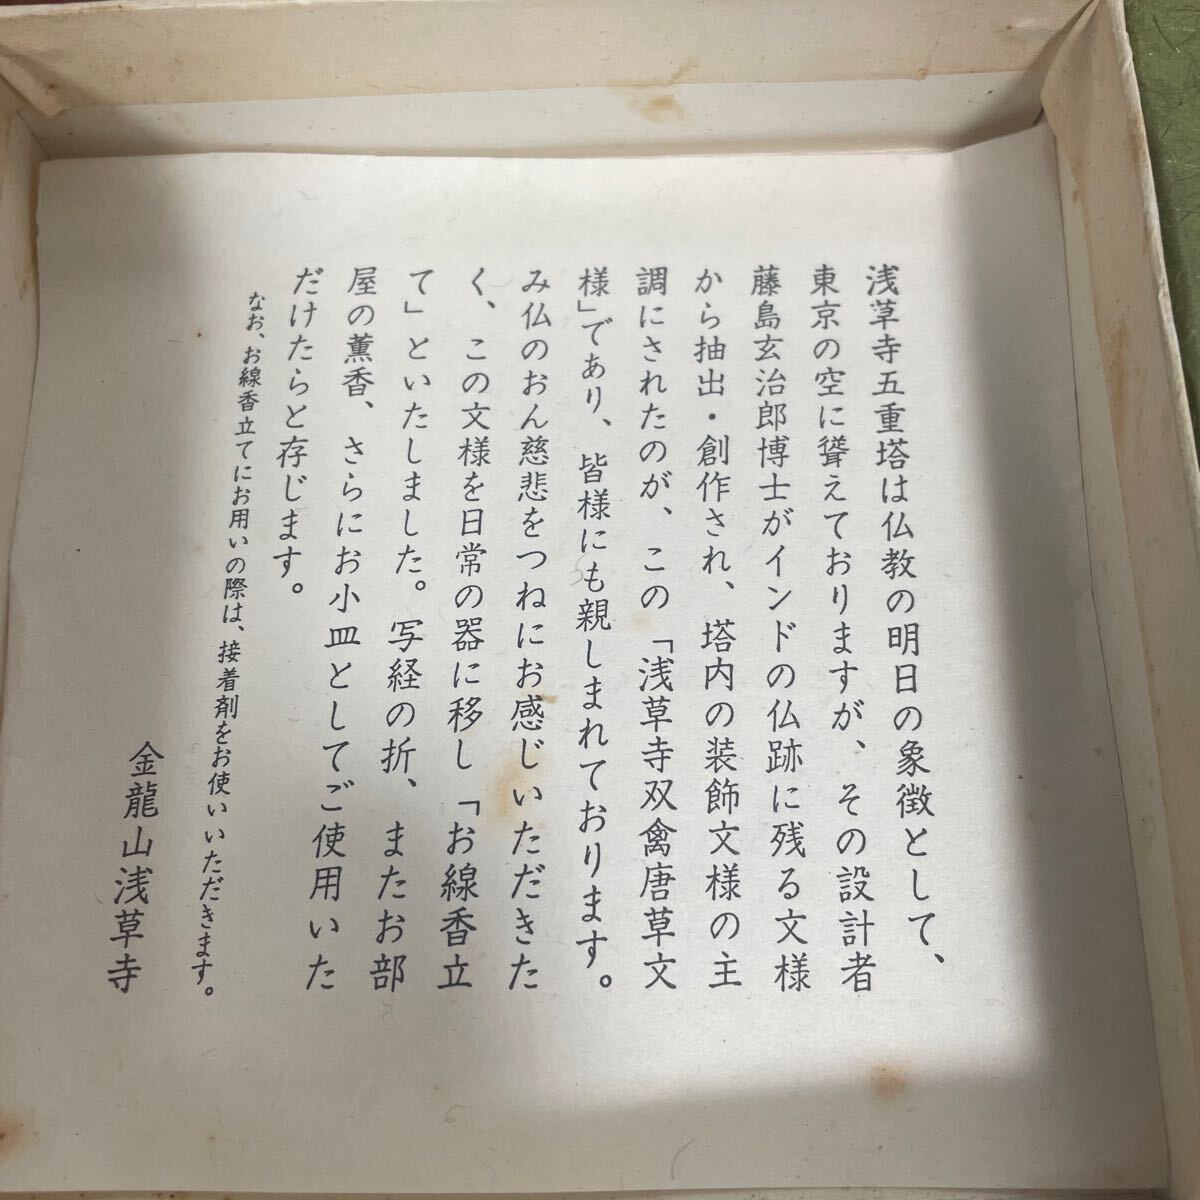 浅草寺五重塔は仏教の明日の象徴として、
東京の空に聳えておりますが、その設計者
藤島玄治郎博士がインドの仏跡に残る文様
から抽出・創作され、塔内の装飾文様の主
調にされたのが、この「浅草寺双禽唐草文
様」であり、皆様にも親しまれております。
み仏のおん慈悲をつねにお感じいただきた
く、この文様を日常の器に移し「お線香立
て」といたしました。写経の折、またお部
屋の薫香、さらにお小皿としてご使用いた
だけたらと存じます。
なお、お線香立てにお用いの際は、接着剤をお使いいただきます。
金龍山浅草寺